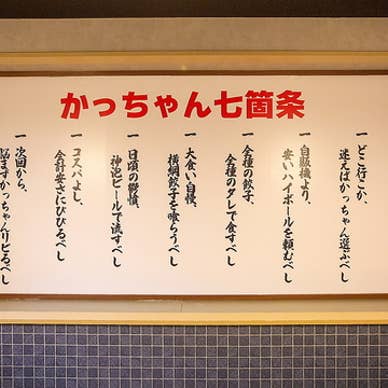 かっちゃん七箇条
一 どこ行こか、
迷えばかっちゃん選ぶべし
一 自販機より、
安いハイボールを頼むべし
一 全種の餃子、
全種のタレで食すべし
一 大食い自慢、
横綱餃子を喰らうべし
一 日頃の鬱憤、
神泡ビールで流すべし
一 コスパよし、
会計安さにびびるべし
一 次回から、
悩まずかっちゃんリピるべし